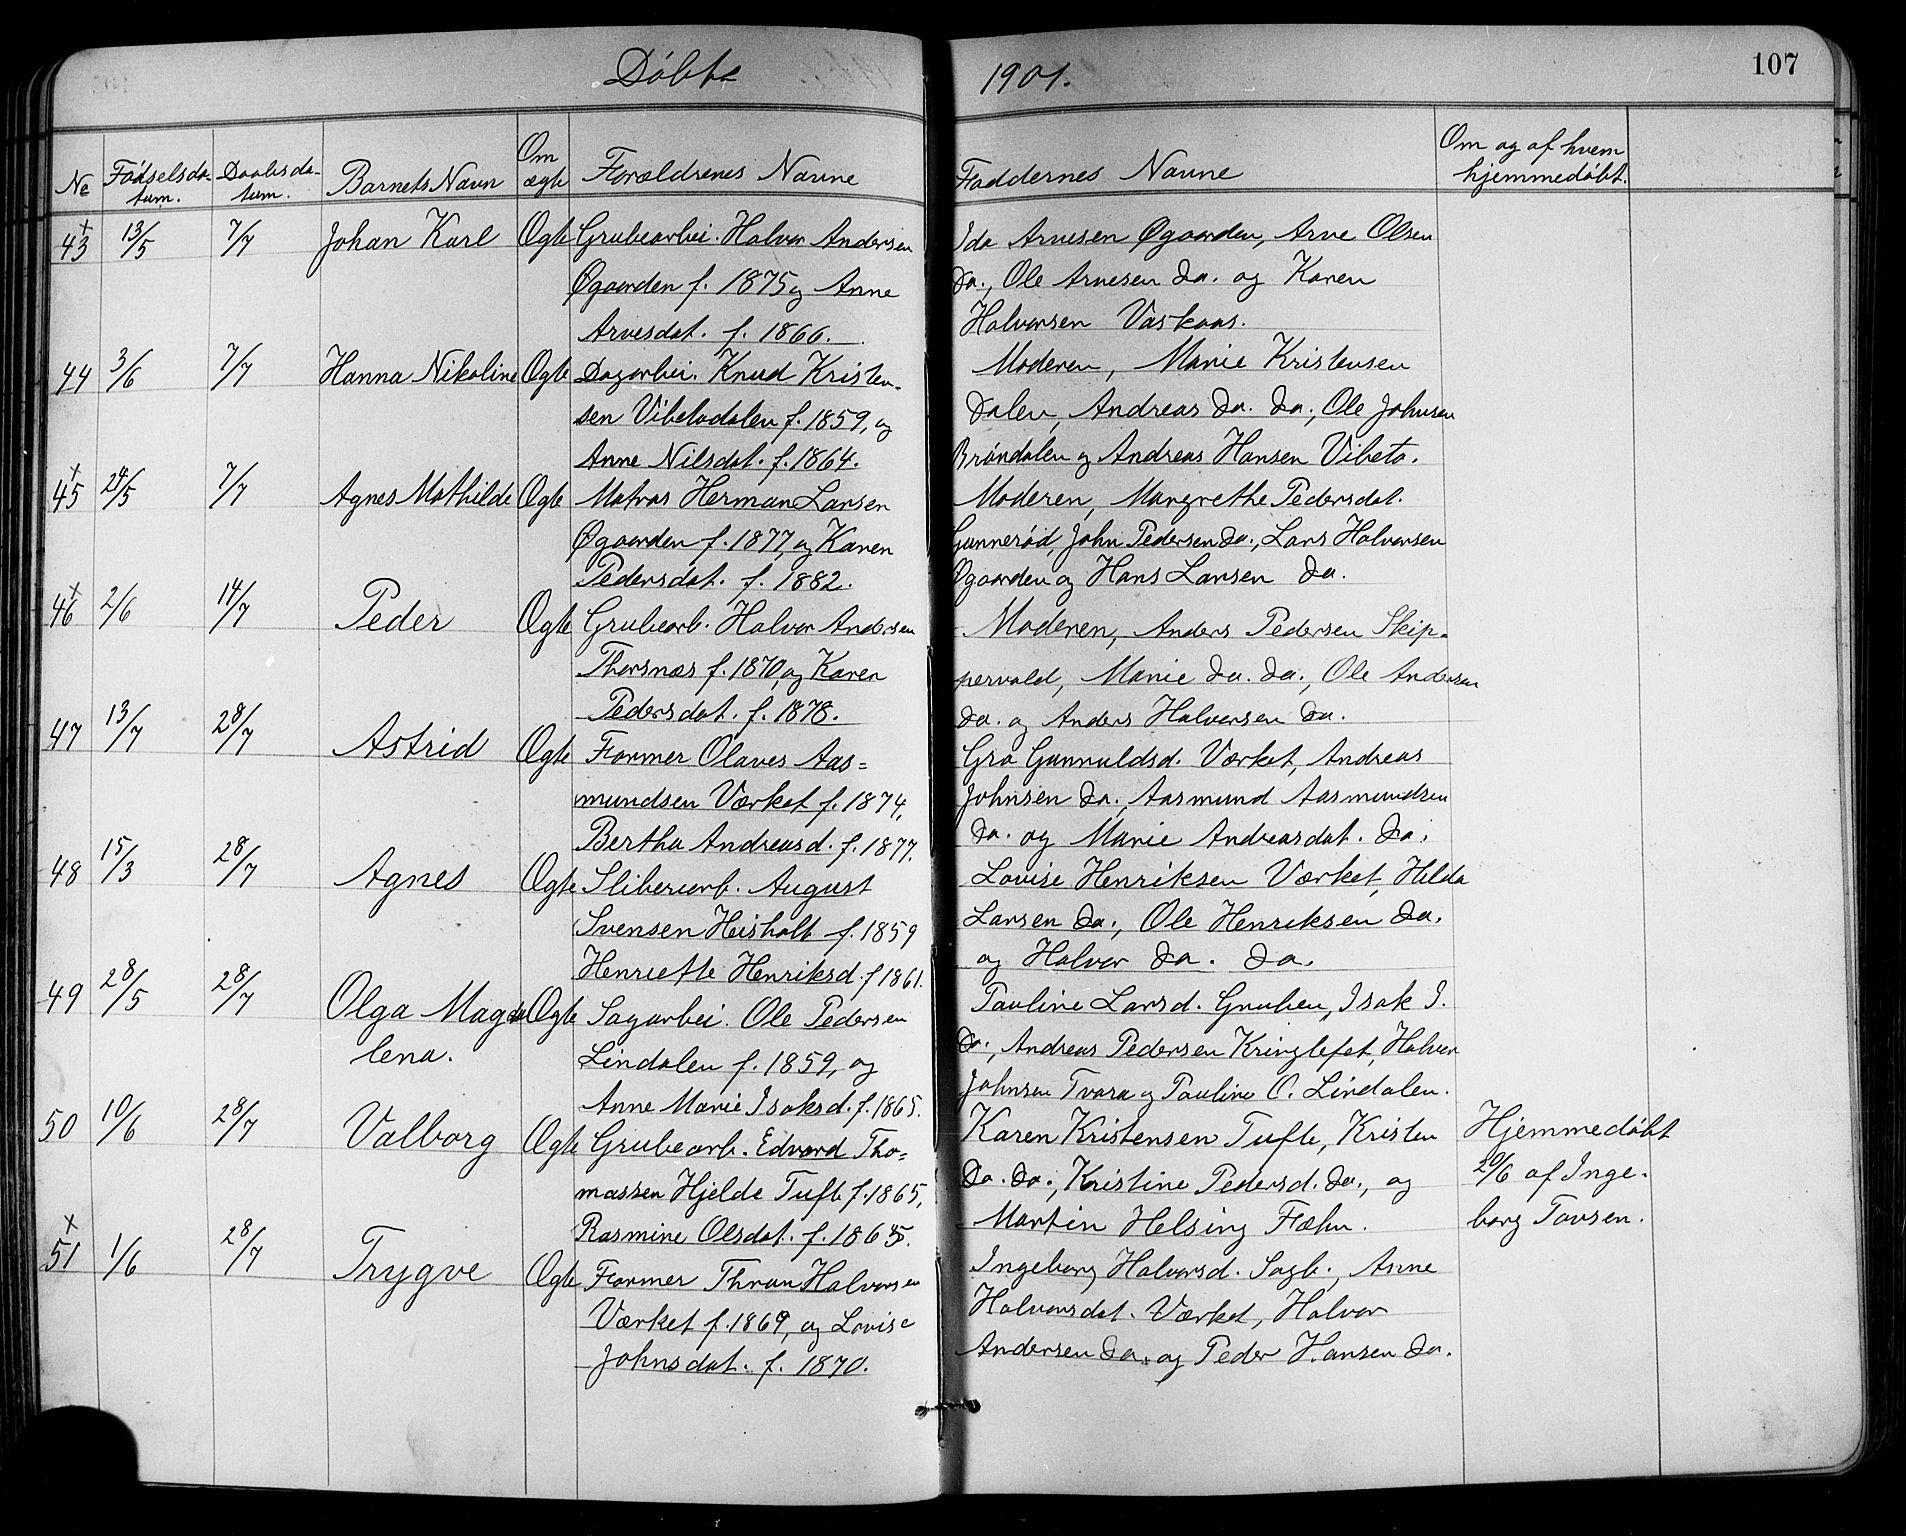 Døbte 1901. 107
No Fødselsda-tum. Daabsda-tum. Barnets Navn Om ægte Forældrenes Navne Faddernes Navne Om og af hvem hjemmedøbt.
43 13/5 7/7 Johan Karl Ægte Grubearbei. Halvor Andersen Ida Arnesen Øgaarden, Arne Olsen
Øgaarden f. 1875 og Anne do., Ole Arnesen do. og Karen
Arnesdat. f. 1866. Halvorsen Vaskaas.
44 3/6 7/7 Hanna Nikoline Ægte Dagarbei. Knud Kristen- Moderen, Marie Kristensen
sen Vibetodalen f. 1859, og Dalen, Andreas do. do., Ole Johnsen
Anne Nilsdat. f. 1864. Brøndalen og Andreas Hansen Vibeto.
45 24/5 7/7 Agnes Mathilde Ægte Matros Herman Larsen Moderen, Margrethe Pedersdat.
Øgaarden f. 1877, og Karen Gunnerød, John Pedersen do., Lars Halvorsen
Pedersdat. f. 1882. Øgaarden og Hans Larsen do.
46 2/6 14/7 Peder Ægte Grubearb. Halvor Andersen Moderen, Anders Pedersen Skip-
Thorsnæs f. 1870, og Karen pervold, Marie do. do., Ole Andersen
Pedersdat. f. 1878. do. og Anders Halvorsen do.
47 13/7 28/7 Astrid Ægte Former Olaves Aas= Gro Gunnuldsd. Værket, Andreas
mundsen Værket f. 1874, Johnsen do., Aasmund Aasmundsen
Bertha Andreasd. f. 1877. do. og Marie Andreasdat. do.
48 15/3 28/7 Agnes Ægte Sliberiarb. August Lovise Henriksen Værket, Hilda
Svensen Heisholt f. 1859 Larsen do., Ole Henriksen do.
Henriette Henriksd. f 1861. og Halvor do. do.
49 28/5 28/7 Olga Magda Ægte Sagarbei. Ole Pedersen Pauline Larsd. Gruben, Isak I.
lena. Lindalen f. 1859, og do., Andreas Pedersen Kringlefet, Halvor
Anne Marie Isaksd. f. 1865. Johnsen Tvara og Pauline O. Lindalen.
50 10/6 28/7 Valborg Ægte Grubearb. Edvard Tho= Karen Kristensen Tufte, Kristen Hjemmedøbt
massen Hjelde Tuft f. 1865, do. do., Kristine Pedersd. do., og 20/6 af Inge-
Rasmine Olsdat. f. 1865. Martin Helsing Fæhn. borg Tovsen.
51 1/6 28/7 Trygve Ægte Former Thron Halvorsen Ingeborg Halvorsd. Sagb., Anne
Værket f. 1869, og Lovise Halvorsdat. Værket, Halvor
Johnsdat. f. 1870. Andersen do. og Peder Hansen do.